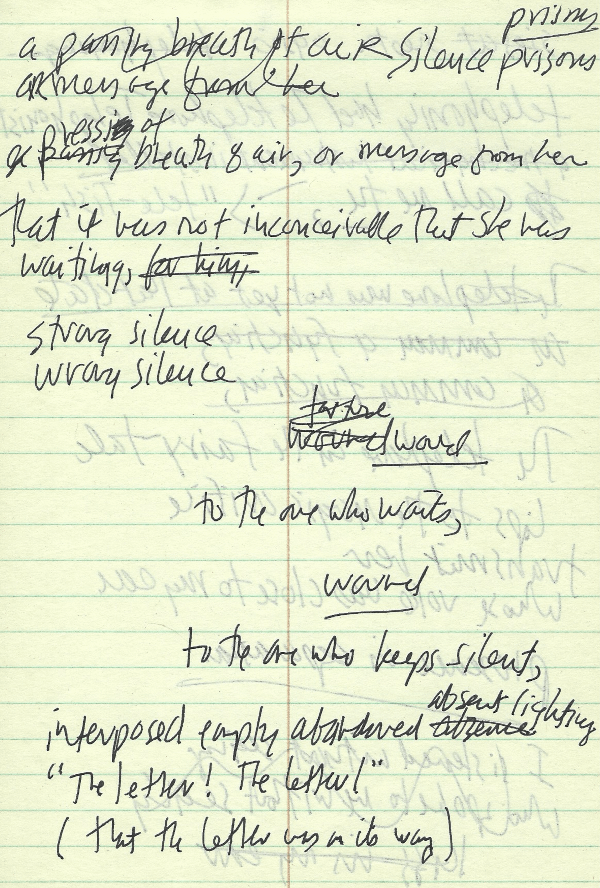 prisms
a passing breath of air Silence prisons
or message from her
pressing of
a passing breath of air, or message from her
that it was not inconceivable that she was
waiting, for him,
strong silence
wrong silence
torture
wound wound
to the one who waits,
wound
to the one who keeps silent,
absent lighting
interposed empty abandoned absence
"The letter! The letter!"
(that the letter was on its way)